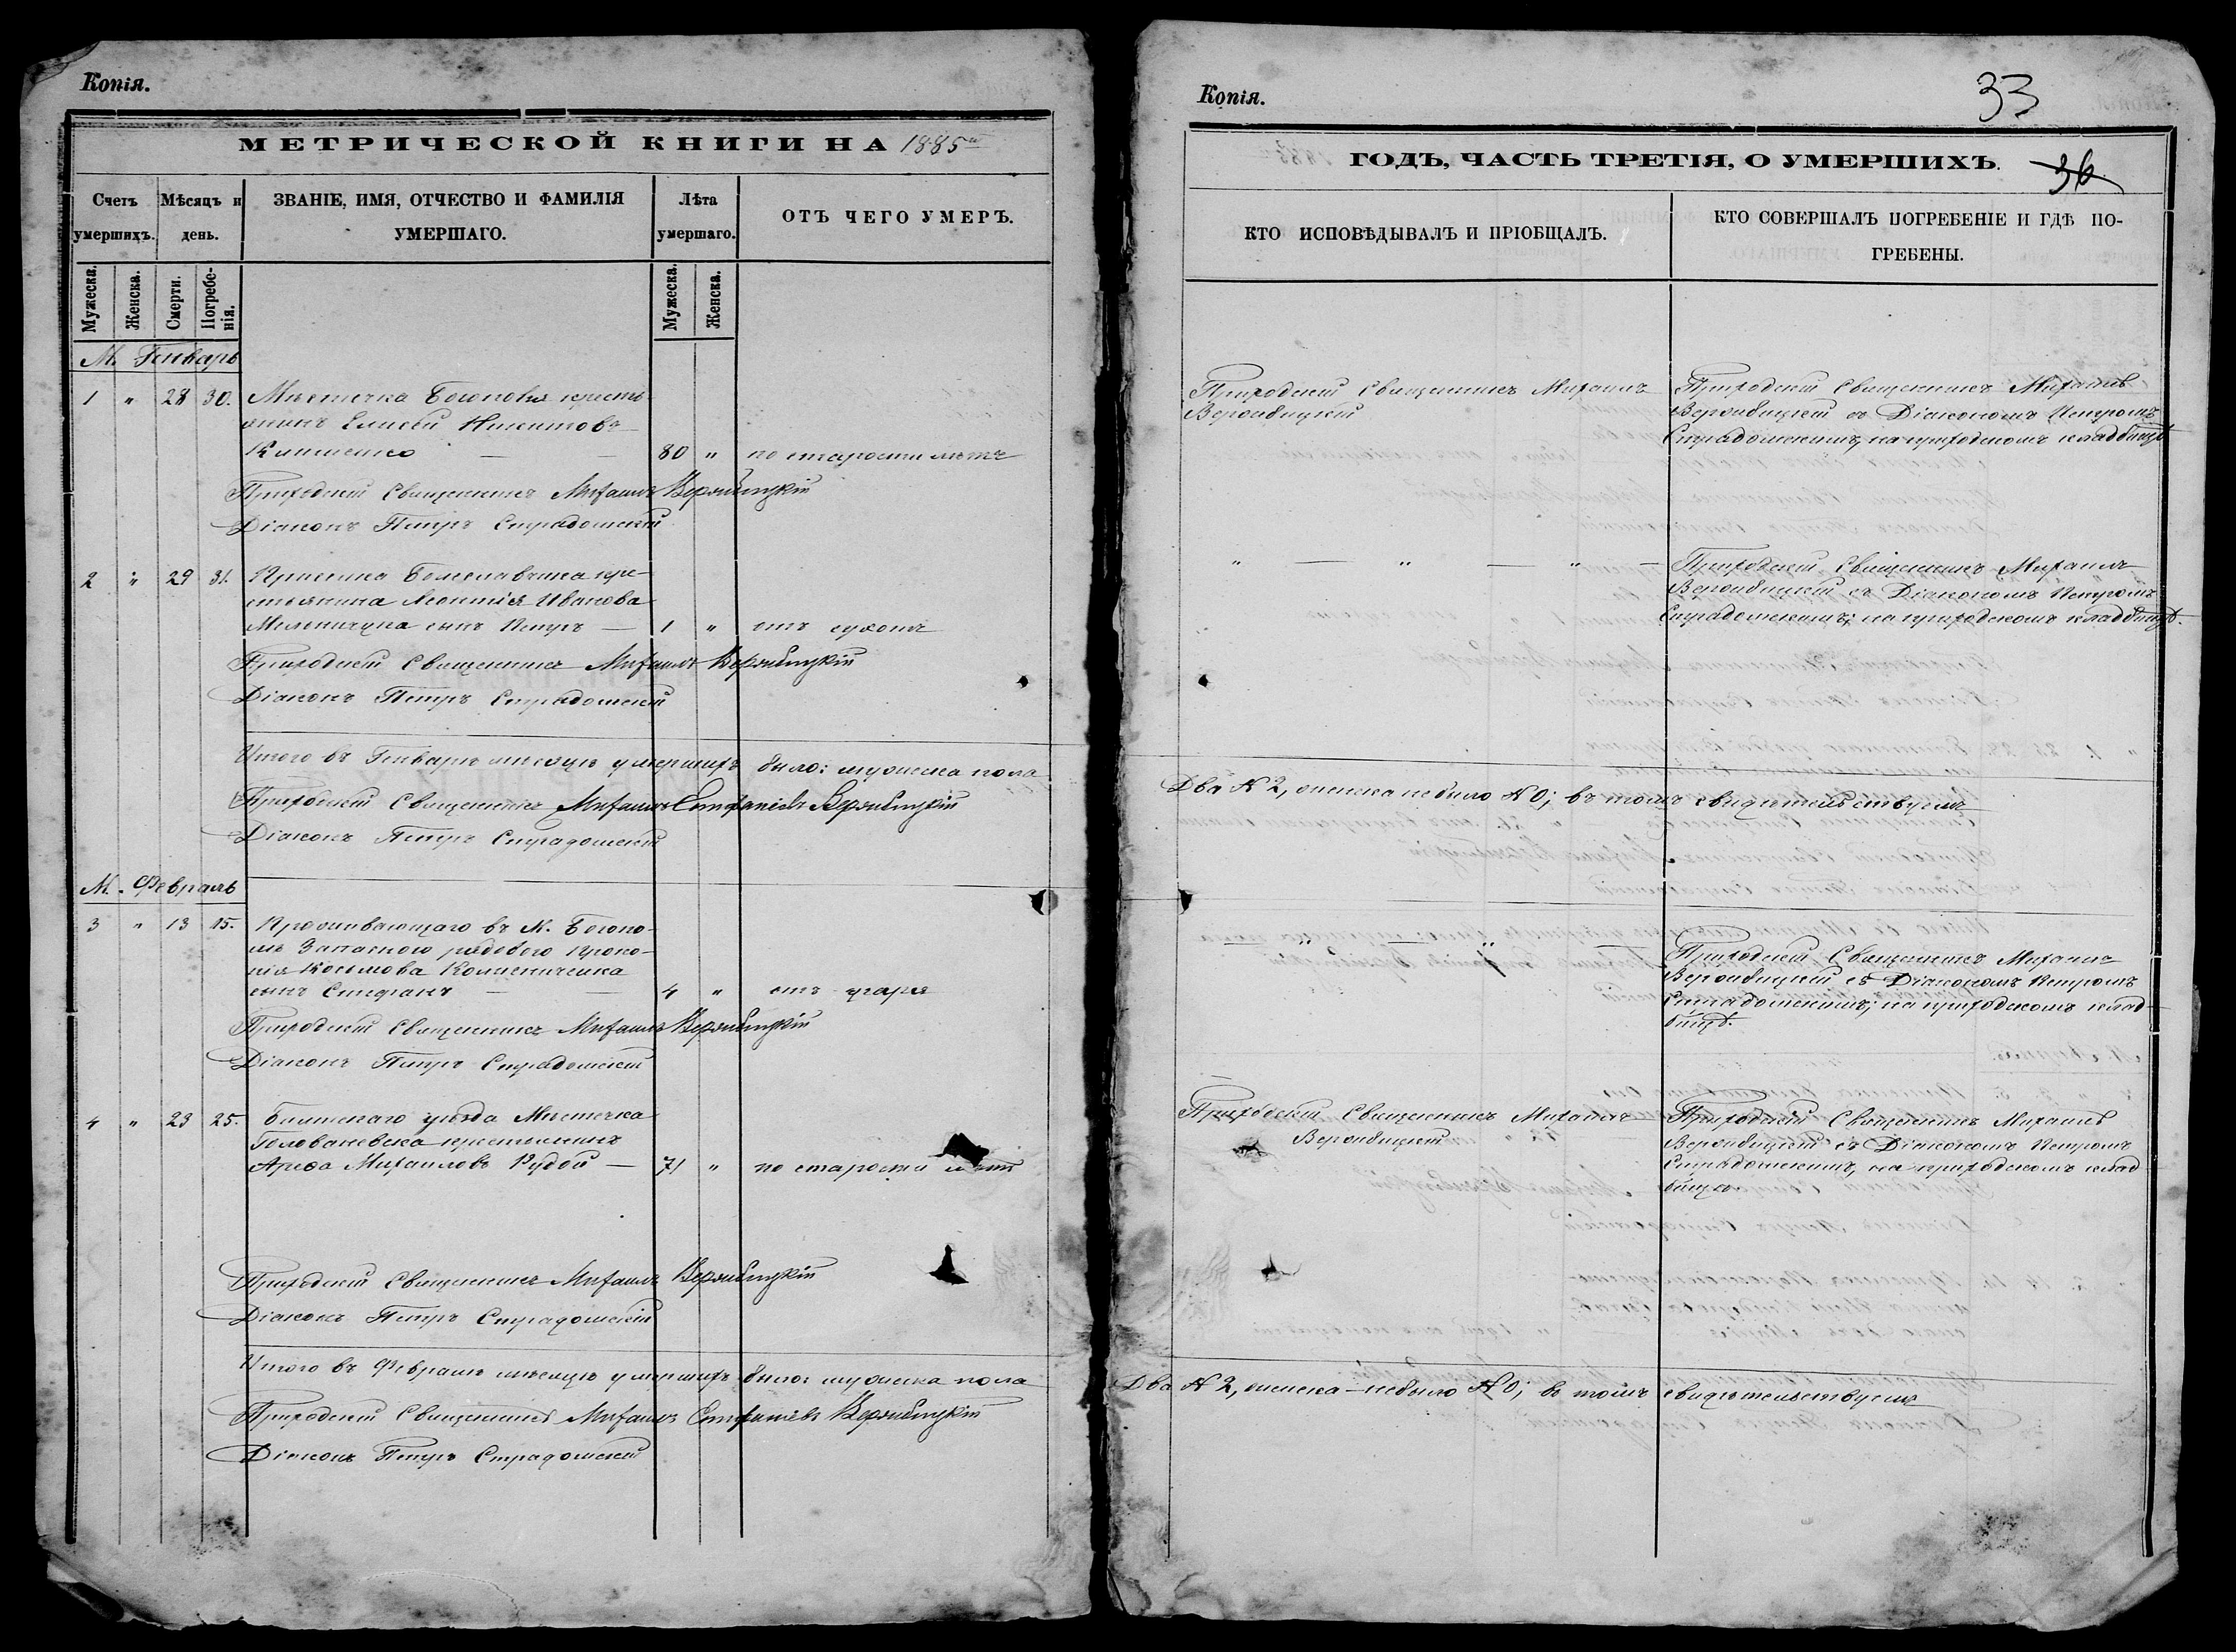 Копія.
МЕТРИЧЕСКОЙ КНИГИ НА 1885й
Счетъ умершихъ.
Мѣсяцъ и день.
ЗВАНІЕ, ИМЯ, ОТЧЕСТВО И ФАМИЛІЯ УМЕРШАГО.
Лѣта умершаго.
ОТЪ ЧЕГО УМЕРЪ.
Мужеска.
Женска.
Смерти.
Погребенія.
Мужеска.
Женска.
М. Генварь
1 " 28 30. Мѣстечка Богополя кресть-
янинъ Елисей Никитовъ
Клименко — — 80 " по старости лѣтъ
Приходскій Священникъ Михаилъ Вержбицкій
Діаконъ Петръ Страдомскій
2 " 29 31. кре-
стьянина Леонтія Иванова
Мельничука сынъ Петръ — 1 " отъ сухотъ
Приходскій Священникъ Михаилъ Вержбицкій
Діаконъ Петръ Страдомскій
Итого въ Генварѣ мѣсяцѣ умершихъ было: мужеска пола
Приходскій Священникъ Михаилъ Епифаніевъ Вержбицкій
Діаконъ Петръ Страдомскій
М. Февраль
3 " 13 15. Проживающаго въ М. Богопо-
лѣ Запаснаго рядового Проко-
пія Косьмова
сынъ Стефанъ — — 4 " отъ угара
Приходскій Священникъ Михаилъ Вержбицкій
Діаконъ Петръ Страдомскій
4 " 23 25. Балтскаго уѣзда Мѣстечка
Голованевска крестьянинъ
Михаиловъ Рудой — 71 " по старости лѣтъ
Приходскій Священникъ Михаилъ Вержбицкій
Діаконъ Петръ Страдомскій
Итого въ Февралѣ мѣсяцѣ умершихъ было: мужеска пола
Приходскій Священникъ Михаилъ Епифаніевъ Вержбицкій
Діаконъ Петръ Страдомскій
Копія.
33
ГОДЪ, ЧАСТЬ ТРЕТІЯ, О УМЕРШИХЪ.
36
КТО ИСПОВѢДЫВАЛЪ И ПРІОБЩАЛЪ.
КТО СОВЕРШАЛЪ ПОГРЕБЕНІЕ И ГДѢ ПО-
ГРЕБЕНЫ.
Приходскій Священникъ Михаилъ
Вержбицкій
Приходскій Священникъ Михаилъ
Вержбицкій съ Діакономъ Петромъ
Страдомскимъ, на приходскомъ кладбищѣ
" — " — " —
Приходскій Священникъ Михаилъ
Вержбицкій съ Діакономъ Петромъ
Страдомскимъ; на приходскомъ кладбищѣ.
Два № 2, женска небыло № 0; въ томъ свидѣтельствуемъ
Приходскій Священникъ Михаилъ
Вержбицкій съ Діакономъ Петромъ
Страдомскимъ; на приходскомъ клад-
бищѣ.
Приходскій Священникъ Михаилъ
Вержбицкій
Приходскій Священникъ Михаилъ
Вержбицкій съ Діакономъ Петромъ
Страдомскимъ, на приходскомъ клад-
бищѣ.
Два № 2, женска — небыло № 0; въ томъ свидѣтельствуемъ